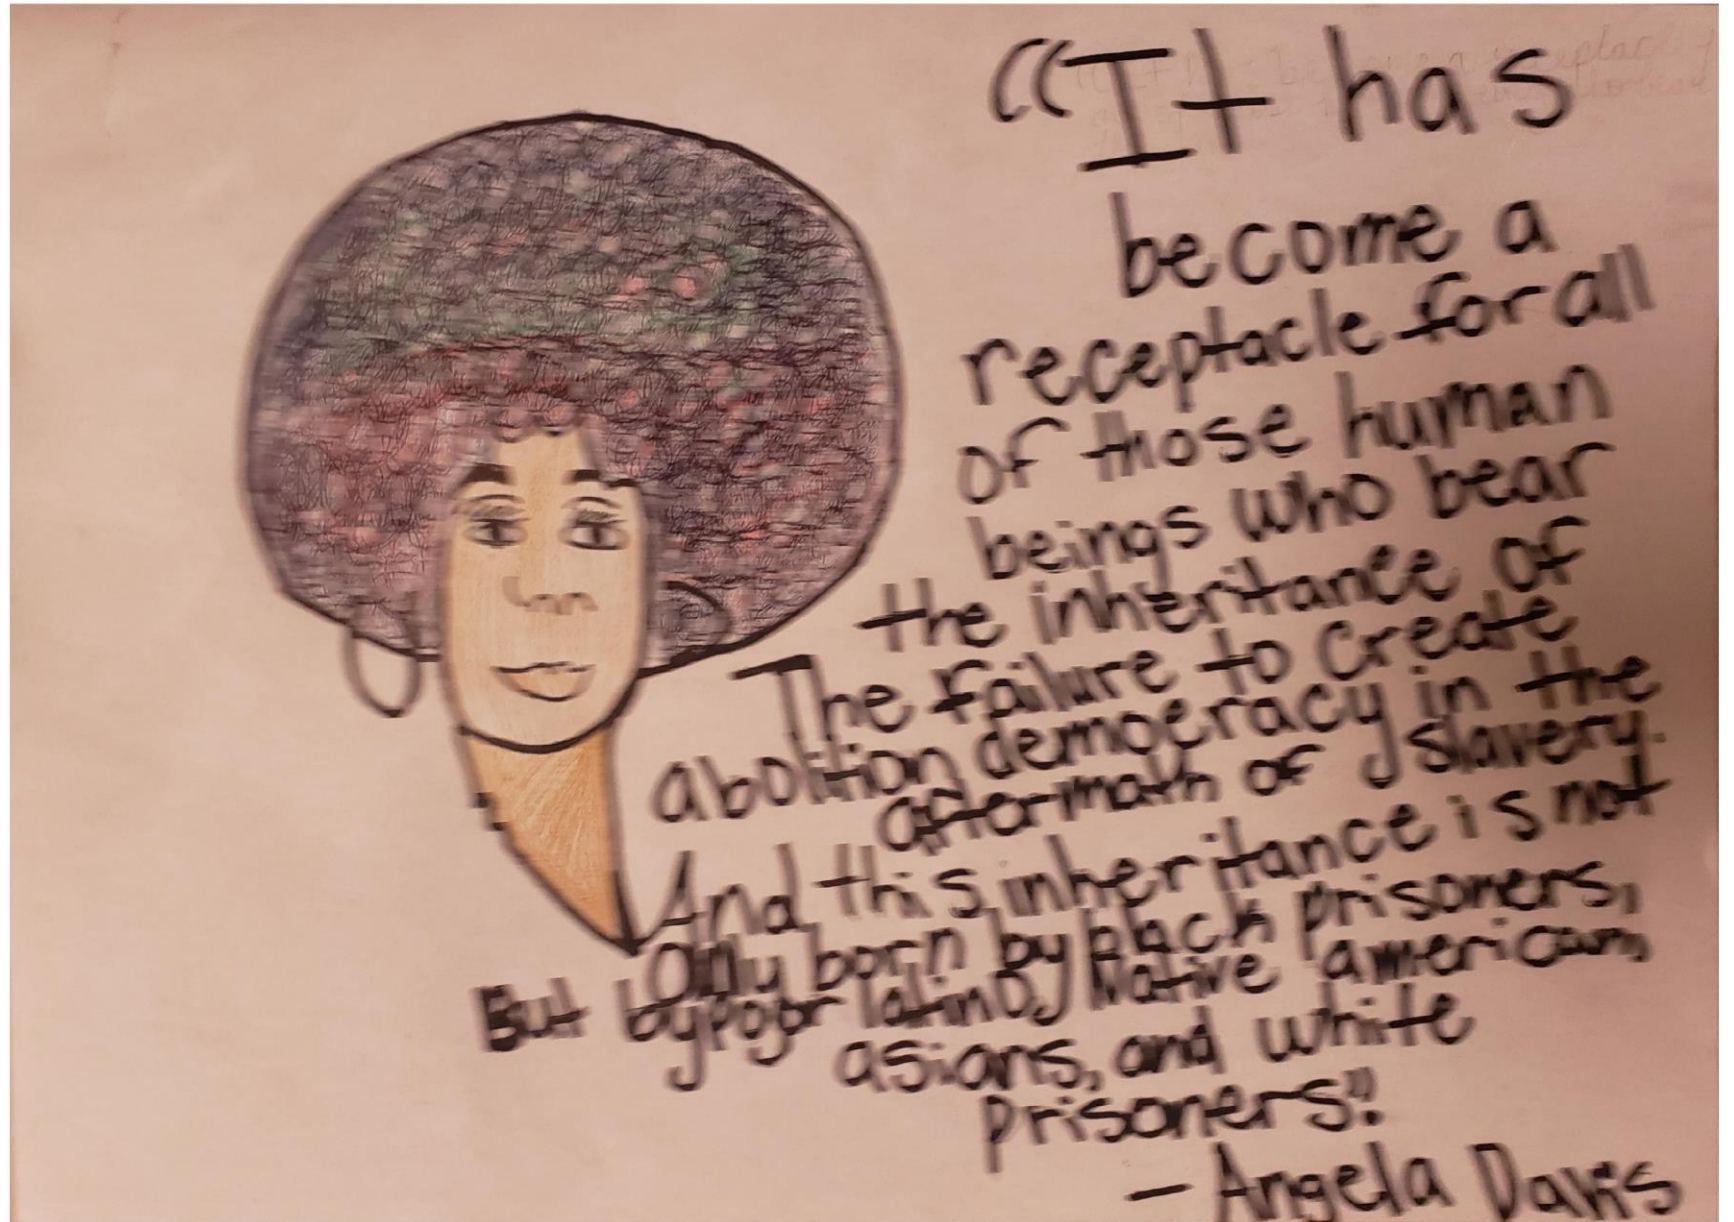 “It has
become a
receptacle for all
of those human
beings who bear
the inheritance of
The failure to create
abolition democracy in the
aftermath of slavery.
And this inheritance is not
only born by black prisoners,
But by poor latino, Native american,
asians, and white
prisoners”
- Angela Davis